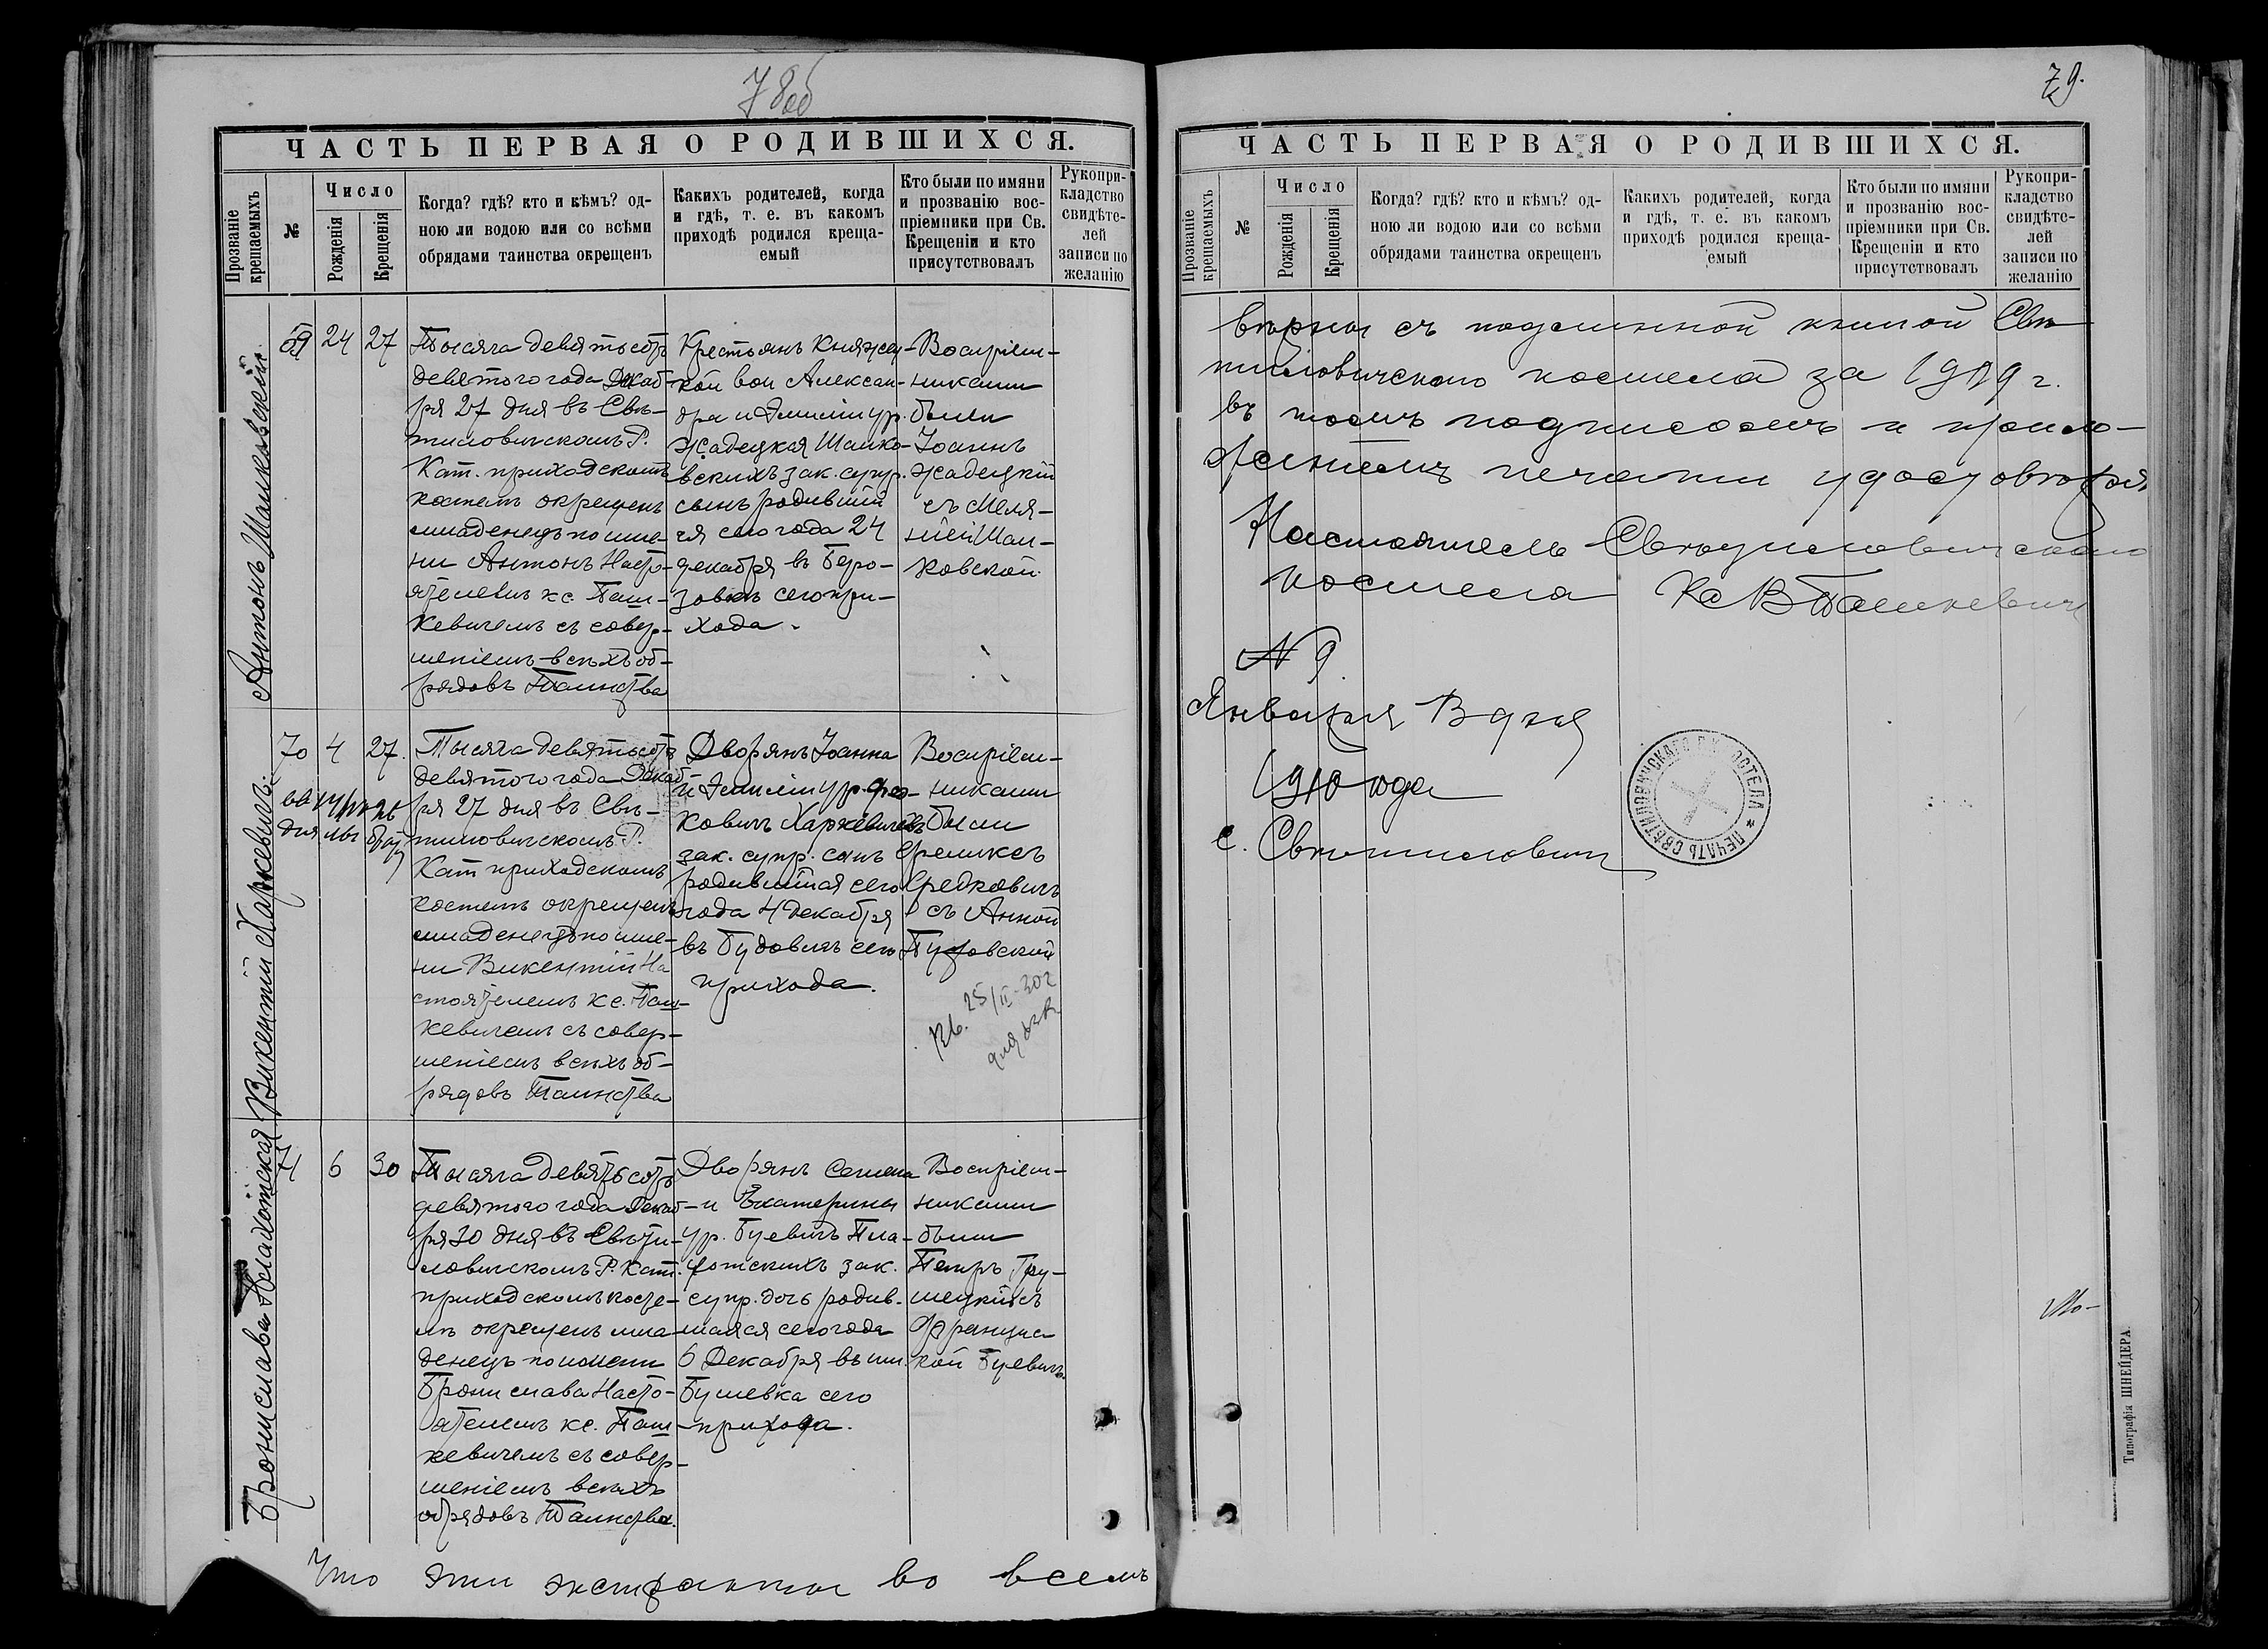 78об
ЧАСТЬ ПЕРВАЯ О РОДИВШИХСЯ.
Прозваніе крещаемыхъ
№
Число
Рожденія
Крещенія
Когда? гдѣ? кто и кѣмъ? од-
ною ли водою или со всѣми
обрядами таинства окрещенъ
Какихъ родителей, когда
и гдѣ, т. е. въ какомъ
приходѣ родился креща-
емый
Кто были по имяни
и прозванію вос-
пріемники при Св.
Крещеніи и кто
присутствовалъ
Рукопри-
кладство
свидѣте-
лей
записи по
желанію
Антонъ Шанковскій.
69
24
27
Тысяча девятьсотъ
девятого года Декаб-
ря 27 дня въ Свѣ-
тиловичскомъ Р.
Кат. приходскомъ
костелѣ окрещенъ
младенецъ по име-
ни Антонъ Насто-
ятелемъ кс. Паш-
кевичемъ съ совер-
шеніемъ всѣхъ об-
рядовъ Таинства
Крестьянъ Княжец-
кой вол Алексан-
дра и Эмиліи ур.
Жадецкая Шанко-
вскихъ зак. супр.
сынъ родившій
ся сего года 24
декабря въ Беро-
зовкѣ сего при-
хода.
Воспріем-
никами
были
Іоаннъ
Жадецкій
съ Меля-
ніей Шан-
ковской.
Викентій Харкевичъ.
70
4
27.
Тысяча девятьсотъ
девятого года Декаб-
ря 27 дня въ Свѣ-
тиловичскомъ Р.
Кат приходскомъ
костелѣ окрещенъ
младенецъ по име-
ни Викентій На
стоятелемъ кс. Паш-
кевичемъ съ совер-
шеніемъ всѣхъ об-
рядовъ Таинства
Дворянъ Іоанна
и Эмиліи ур. Фед-
ковичъ Харкевичевъ
зак. супр. сынъ
родившійся сего
года 4 декабря
въ Будовлѣ сего
прихода.
Воспріем-
никами
были
Феликсъ
Федковичъ
съ Анной
25/II-30г
Бронислава Плахотская
71
6
30
Тысяча девятьсотъ
девятого года Декаб-
ря 30 дня въ Свѣти-
ловичскомъ Р. Кат.
приходскомъ косте-
лѣ окрещенъ мла-
денецъ по имени
Бронислава Насто-
ятелемъ кс. Паш-
кевичемъ съ совер-
шеніемъ всѣхъ
обрядовъ Таинства.
Дворянъ Семена
и Екатерины
ур. Буевичъ Пла-
хотскихъ зак.
супр. дочь родив-
шаяся сего года
6 Декабря въ им.
Бушевка сего
прихода.
Воспріем-
никами
были
Петръ Гру-
шецкій съ
Францис
кой Буевичъ.
Что эти экстракты во всемъ
79.
ЧАСТЬ ПЕРВАЯ О РОДИВШИХСЯ.
Прозваніе крещаемыхъ
№
Число
Рожденія
Крещенія
Когда? гдѣ? кто и кѣмъ? од-
ною ли водою или со всѣми
обрядами таинства окрещенъ
Какихъ родителей, когда
и гдѣ, т. е. въ какомъ
приходѣ родился креща-
емый
Кто были по имяни
и прозванію вос-
пріемники при Св.
Крещеніи и кто
присутствовалъ
Рукопри-
кладство
свидѣте-
лей
записи по
желанію
вѣрны съ подлинной книгой Свѣ
тиловичскаго костела за 1909 г.
въ томъ подписомъ и прило-
женіемъ печати удостовѣряя
Настоятель Свѣтиловичскаго
костела Кс В Пашкевичъ
№ 9
Января дня
1910 года
с. Свѣтиловичи
ПЕЧАТЬ СВѢТИЛОВИЧСКАГО Р. К. КОСТЕЛА *
Типографія ШНЕЙДЕРА.